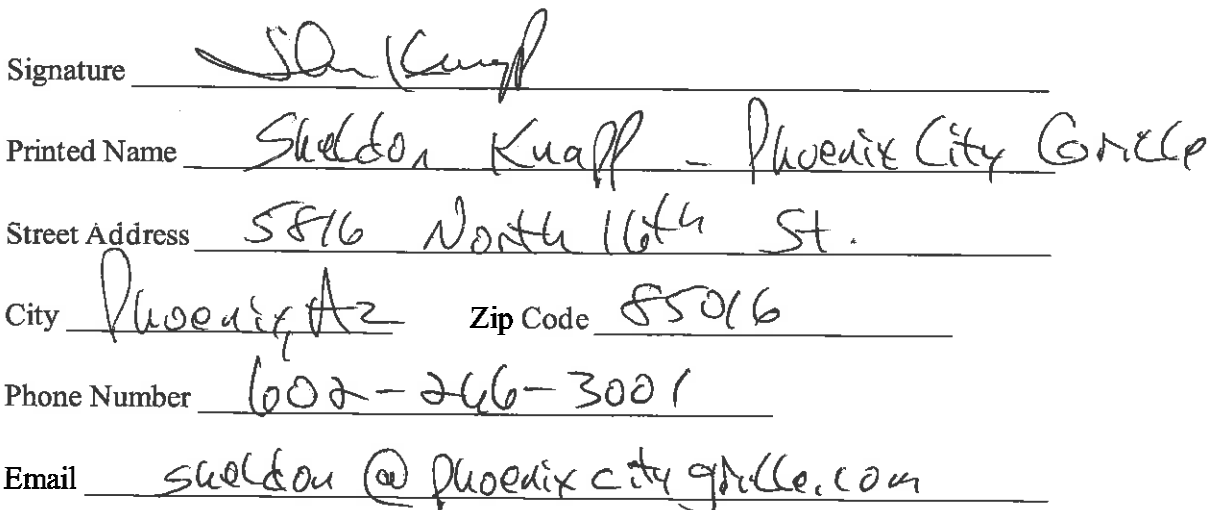 Signature Shn Knapp
Printed Name Sheldon Knapp - Phoenix City Grille
Street Address 5816 North 16th St.
City Phoenix, Az Zip Code 85016
Phone Number 602-266-3001
Email sheldon@phoenixcitygrille.com